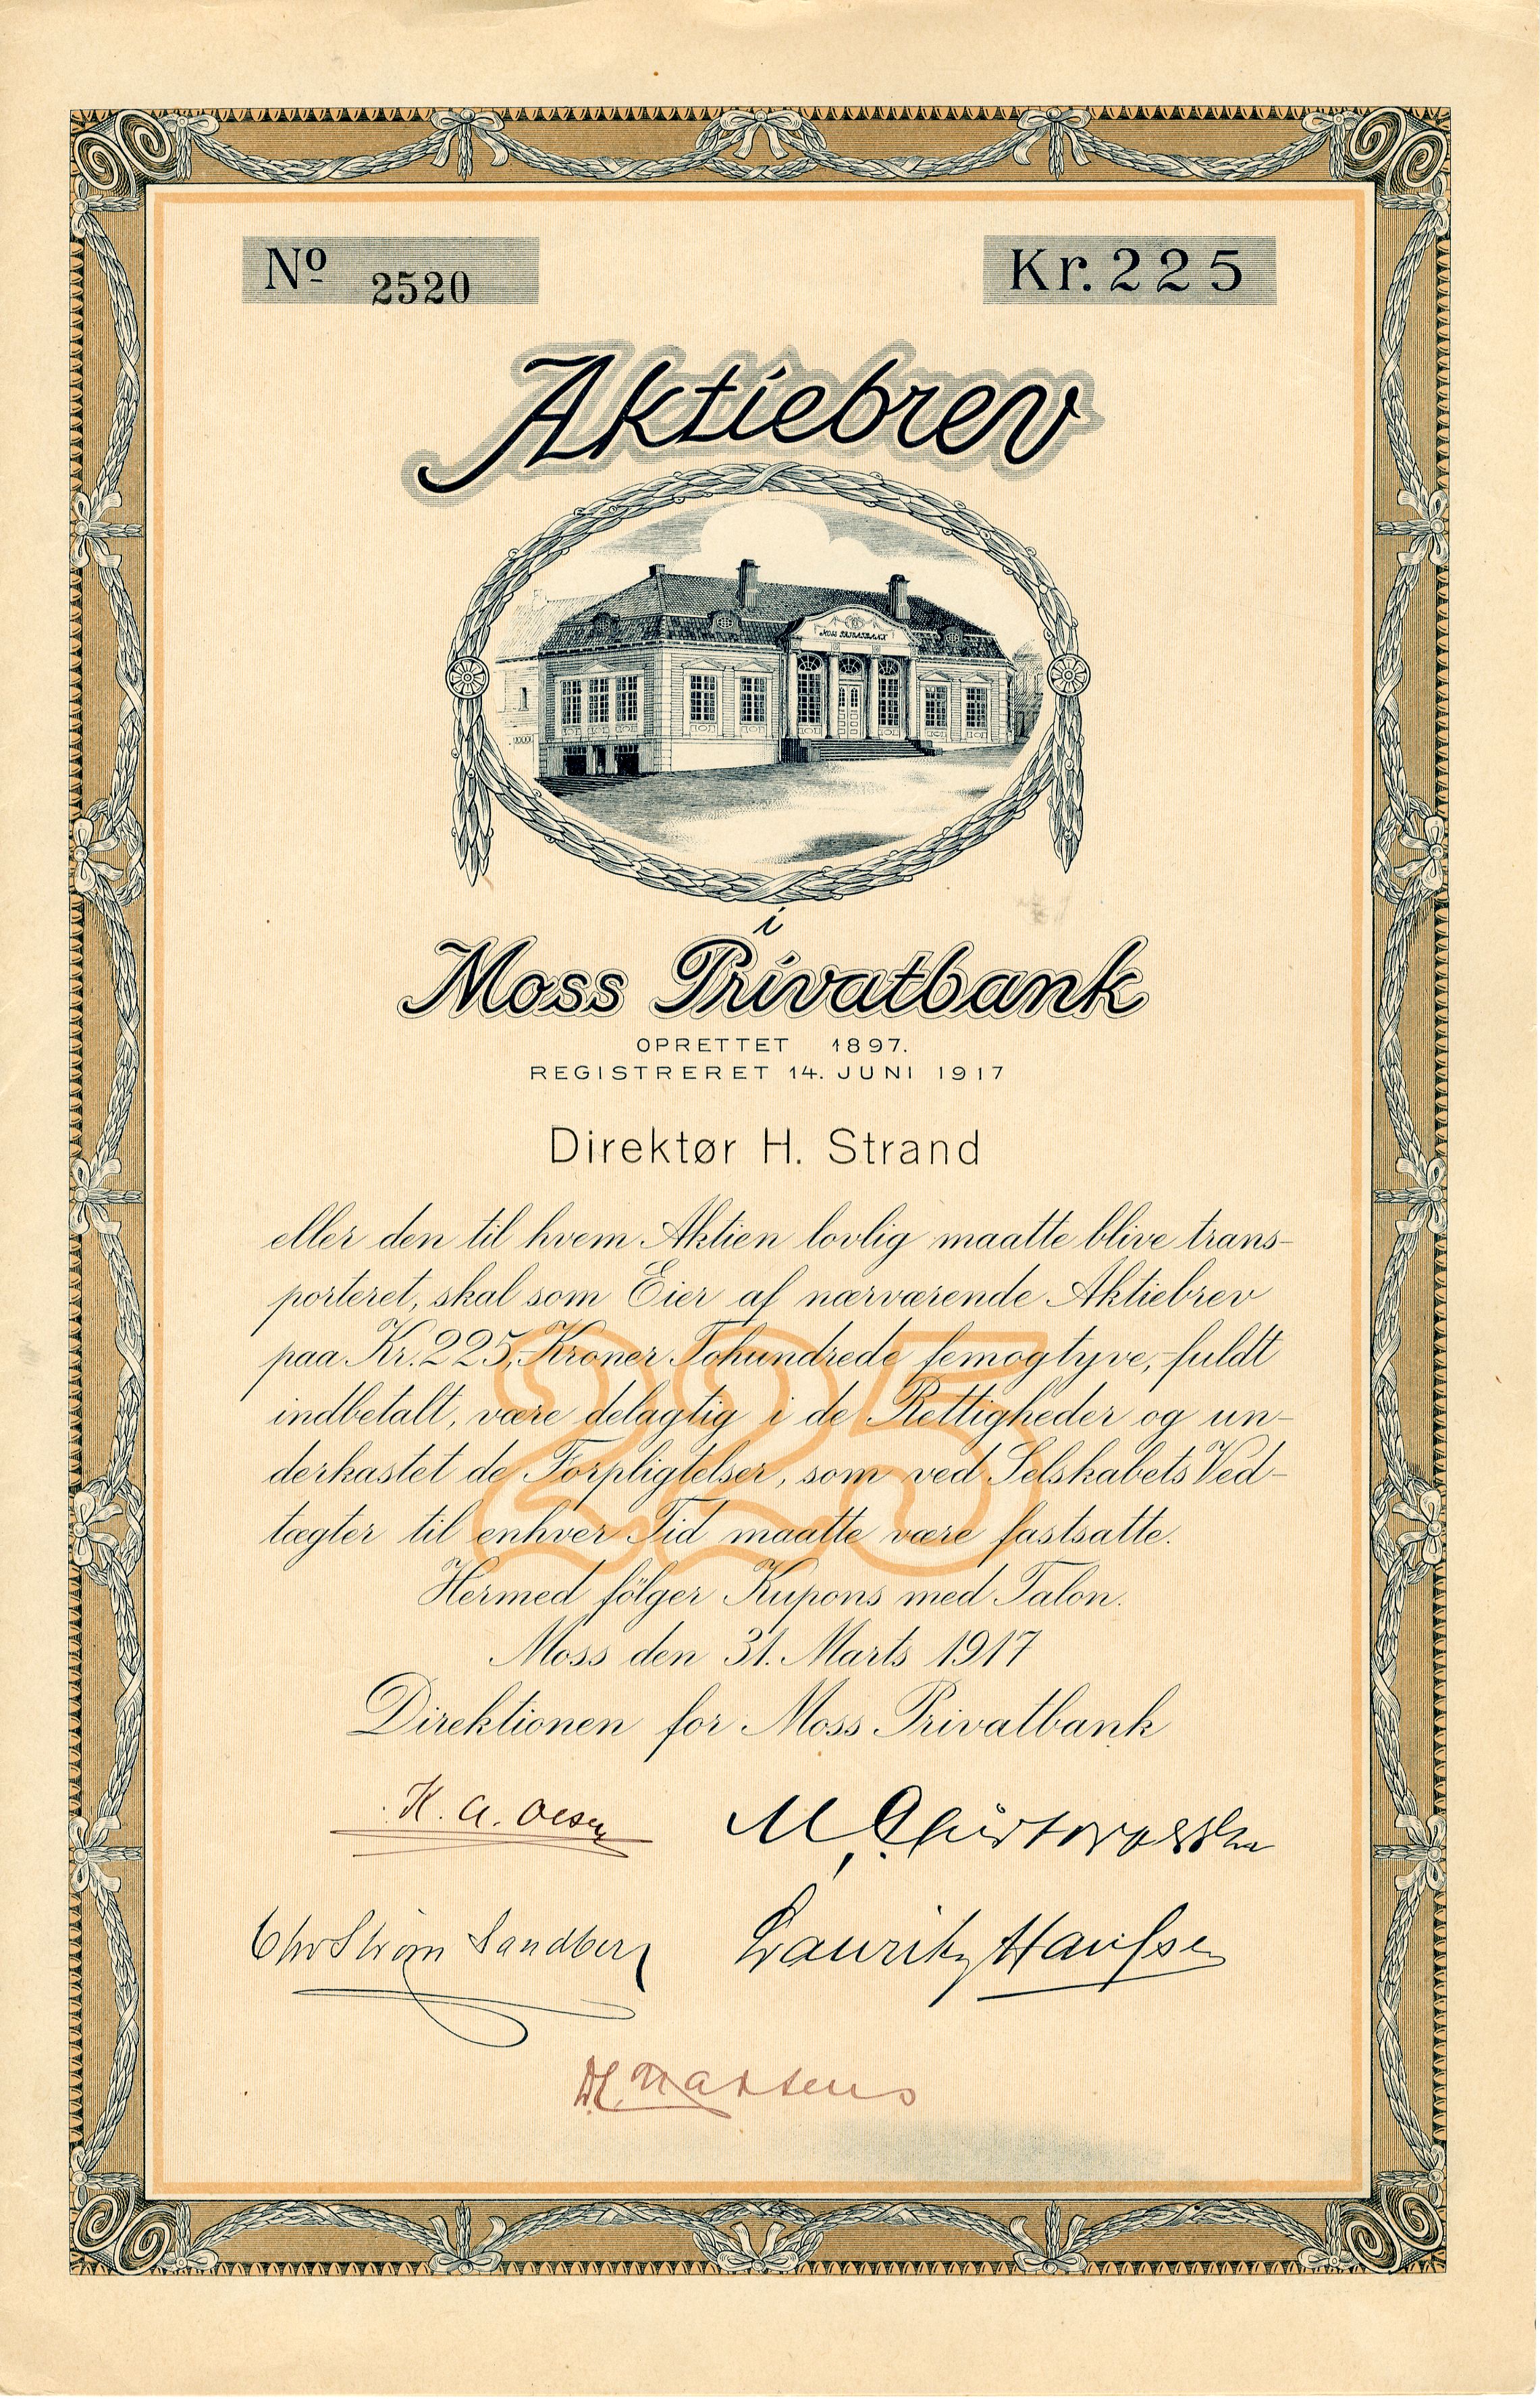 Nº 2520
Kr. 225
Aktiebrev
MOSS PRIVATBANK
i
Moss Privatbank
OPRETTET 1897.
REGISTRERET 14. JUNI 1917
Direktør H. Strand
eller den til hvem Aktien lovlig maatte blive trans-
porteret, skal som Eier af nærværende Aktiebrev
paa Kr. 225, Kroner Tohundrede femogtyve, fuldt
indbetalt, være delagtig i de Rettigheder og un-
derkastet de Forpligtelser, som ved Selskabets Ved-
tægter til enhver Tid maatte være fastsatte.
225
Hermed følger Kupons med Talon.
Moss den 31. Marts 1917
Direktionen for Moss Privatbank
K. A. Olsen
M.
Chr Strøm Sandberg
Lauritz Hansen